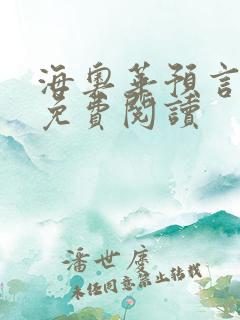 海奧華預言
免費閱讀
潘世慶
未经同意禁止转载